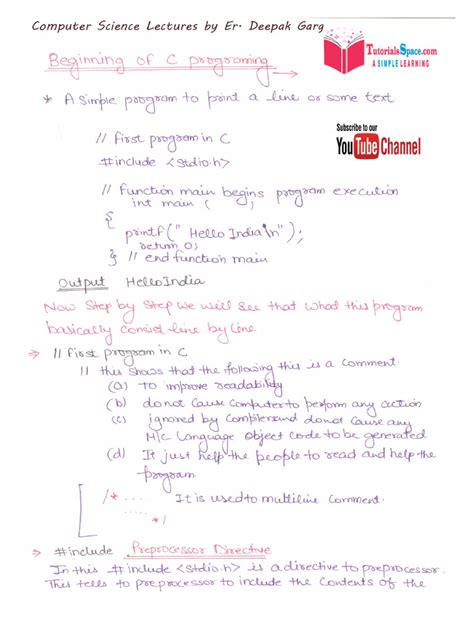 Computer Science Lectures by Er. Deepak Garg
TutorialsSpace.com
A SIMPLE LEARNING
Beginning of C programing
* A Simple program to print a line or some text
// First program in C
#include <stdio.h>
Subscribe to our
YouTube Channel
// Function main begins program execution
int main ( )
{
printf(" Hello India\n");
return 0;
} // end function main
Output Hello India
Now Step by Step we will see that what this program
basically consist line by line
→ // First program in C
// this shows that the following this is a comment
(a) to improve readability
(b) do not cause computer to perform any action
(c) ignored by Compiler and donot cause any
M/c Language object code to be generated
(d) It just help the people to read and help the
program
/* .... It is used to multiline comment.
....
*/
→ #include Preprocessor Directive
In this #include <stdio.h> is a directive to preprocessor.
This tells to preprocessor to include the contents of the